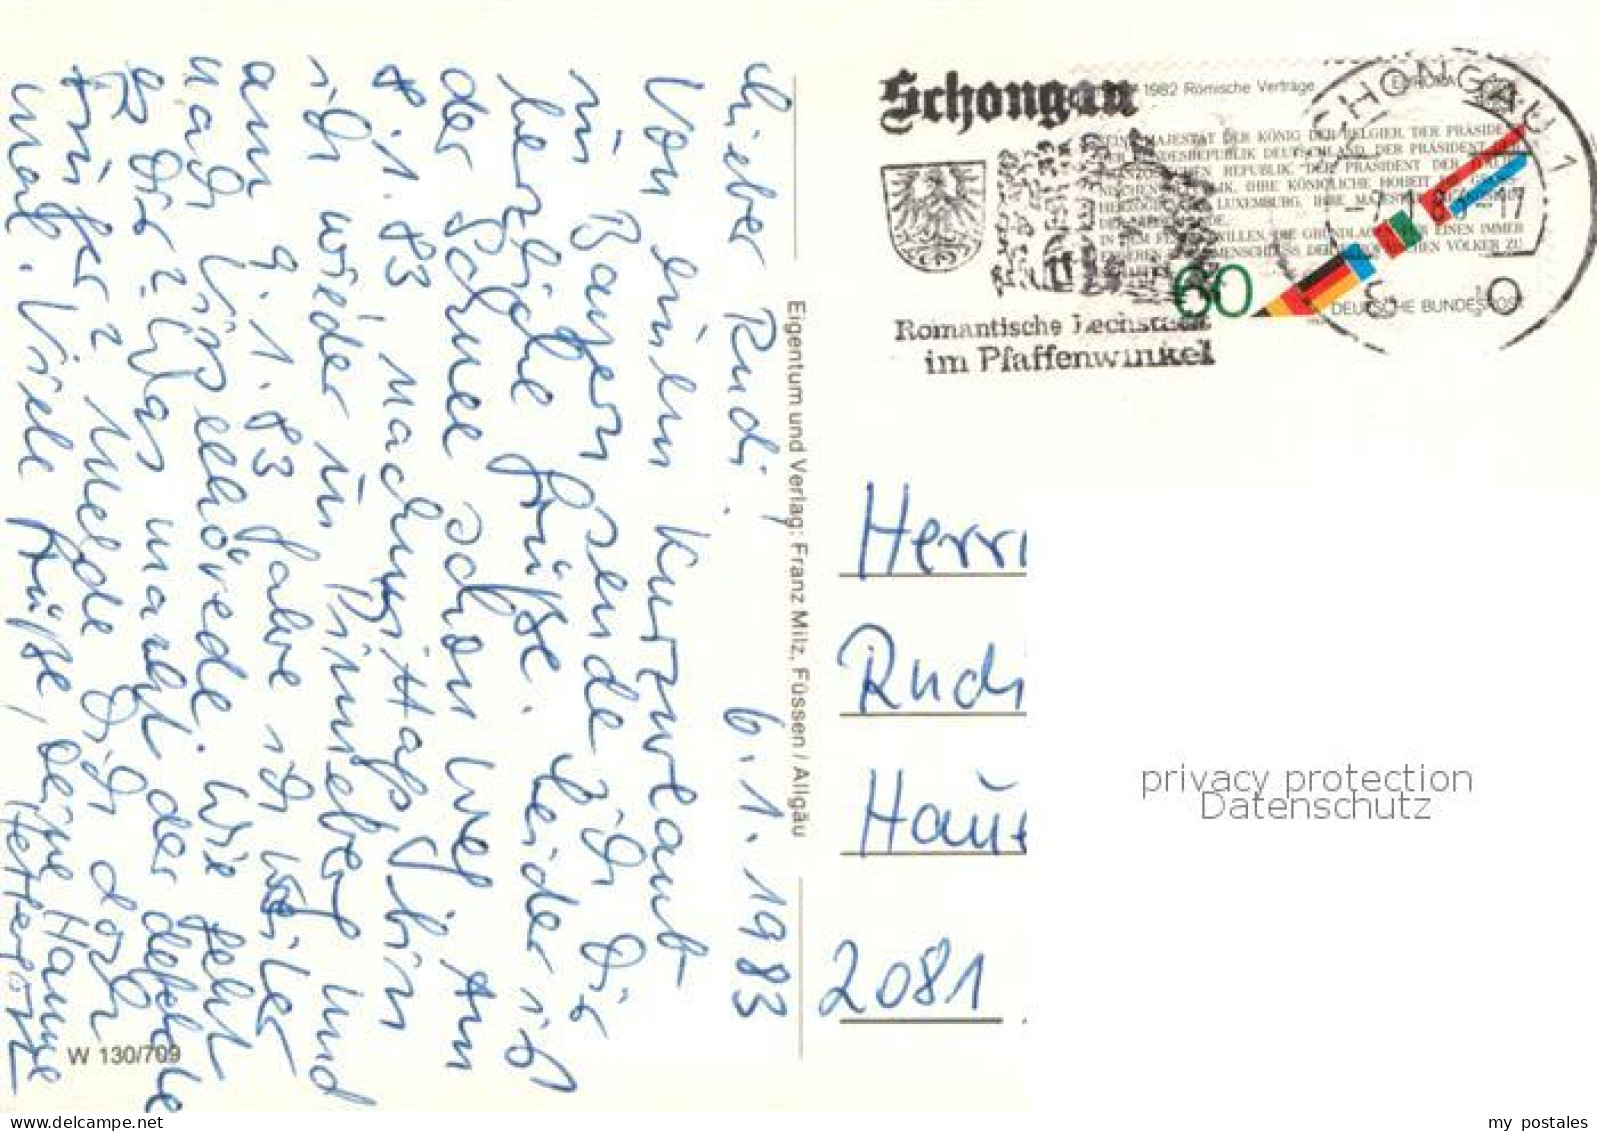 Lieber Rudi! 6.1.1983
Von einem Kurzurlaub
in Bayern sende ich Dir
herzliche Grüße. Leider ist
der Schnee schon weg. Am
8.1.83 nachmittags bin
ich wieder in Pinneberg und
am 9.1.83 fahre ich weiter
nach Großenhörede. Wie geht
es Dir? Was macht der
früher? Melde Dich doch
mal. Viele Grüße, Deine Hanne
W 130/709
Eigentum und Verlag: Franz Milz, Füssen / Allgäu
Schongau
Romantische Lechstadt
im Pfaffenwinkel
1982 Römische Verträge
EUROPA
SEINE MAJESTÄT DER KÖNIG DER BELGIER, DER PRÄSIDENT
DER BUNDESREPUBLIK DEUTSCHLAND, DER PRÄSIDENT DER
FRANZÖSISCHEN REPUBLIK, DER PRÄSIDENT DER ITALIE-
NISCHEN REPUBLIK, IHRE KÖNIGLICHE HOHEIT
LUXEMBURG, IHRE MAJESTÄT
IN DEM FESTEN WILLEN, DIE GRUNDLAGEN FÜR EINEN IMMER
ENGEREN ZUSAMMENSCHLUSS DER EUROPÄISCHEN VÖLKER ZU
60
DEUTSCHE BUNDESPOST
SCHONGAU 1
Herrn
Rudi
2081
privacy protection
Datenschutz
W130.be
my postales